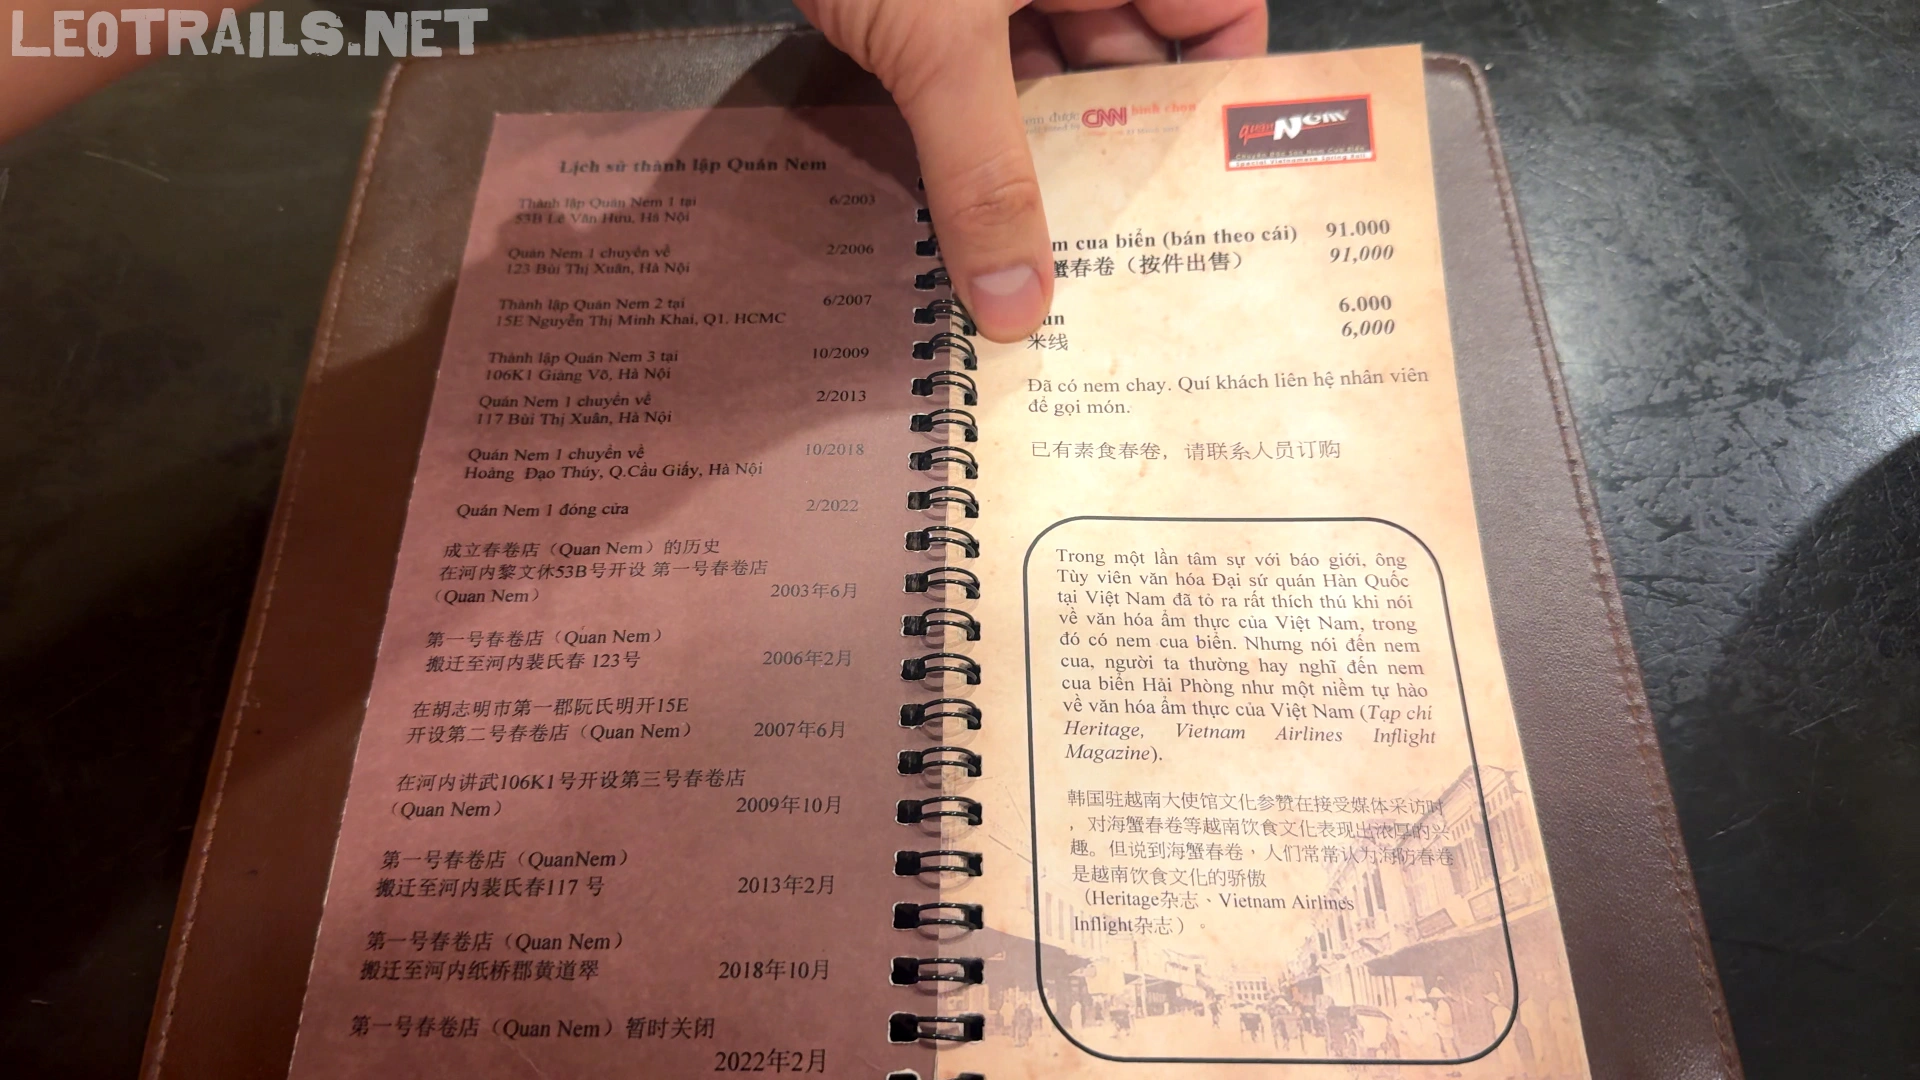 LEOTRAILS.NET
Lịch sử thành lập Quán Nem
Thành lập Quán Nem 1 tại 6/2003
53B Lê Văn Hưu, Hà Nội
Quán Nem 1 chuyển về 2/2006
123 Bùi Thị Xuân, Hà Nội
Thành lập Quán Nem 2 tại 6/2007
15E Nguyễn Thị Minh Khai, Q1. HCMC
Thành lập Quán Nem 3 tại 10/2009
106K1 Giảng Võ, Hà Nội
Quán Nem 1 chuyển về 2/2013
117 Bùi Thị Xuân, Hà Nội
Quán Nem 1 chuyển về 10/2018
Hoàng Đạo Thúy, Q.Cầu Giấy, Hà Nội
Quán Nem 1 đóng cửa 2/2022
成立春卷店（Quan Nem）的历史
在河内黎文休53B号开设 第一号春卷店
（Quan Nem） 2003年6月
第一号春卷店（Quan Nem）
搬迁至河内裴氏春 123号 2006年2月
在胡志明市第一郡阮氏明开15E
开设第二号春卷店（Quan Nem） 2007年6月
在河内讲武106K1号开设第三号春卷店
（Quan Nem） 2009年10月
第一号春卷店（QuanNem）
搬迁至河内裴氏春117 号 2013年2月
第一号春卷店（Quan Nem）
搬迁至河内纸桥郡黄道翠 2018年10月
第一号春卷店（Quan Nem）暂时关闭
2022年2月
được CNN bình chọn
quán Nem
Chuyên Đặc Sản Nem Cua Biển
Special Vietnamese Spring Roll
cua biển (bán theo cái) 91.000
蟹春卷（按件出售） 91,000
6.000
米线 6,000
Đã có nem chay. Quí khách liên hệ nhân viên
để gọi món.
已有素食春卷，请联系人员订购
Trong một lần tâm sự với báo giới, ông
Tùy viên văn hóa Đại sứ quán Hàn Quốc
tại Việt Nam đã tỏ ra rất thích thú khi nói
về văn hóa ẩm thực của Việt Nam, trong
đó có nem cua biển. Nhưng nói đến nem
cua, người ta thường hay nghĩ đến nem
cua biển Hải Phòng như một niềm tự hào
về văn hóa ẩm thực của Việt Nam (Tạp chí
Heritage, Vietnam Airlines Inflight
Magazine).
韩国驻越南大使馆文化参赞在接受媒体采访时
，对海蟹春卷等越南饮食文化表现出浓厚的兴
趣。但说到海蟹春卷，人们常常认为海防春卷
是越南饮食文化的骄傲
（Heritage杂志、Vietnam Airlines
Inflight杂志）。